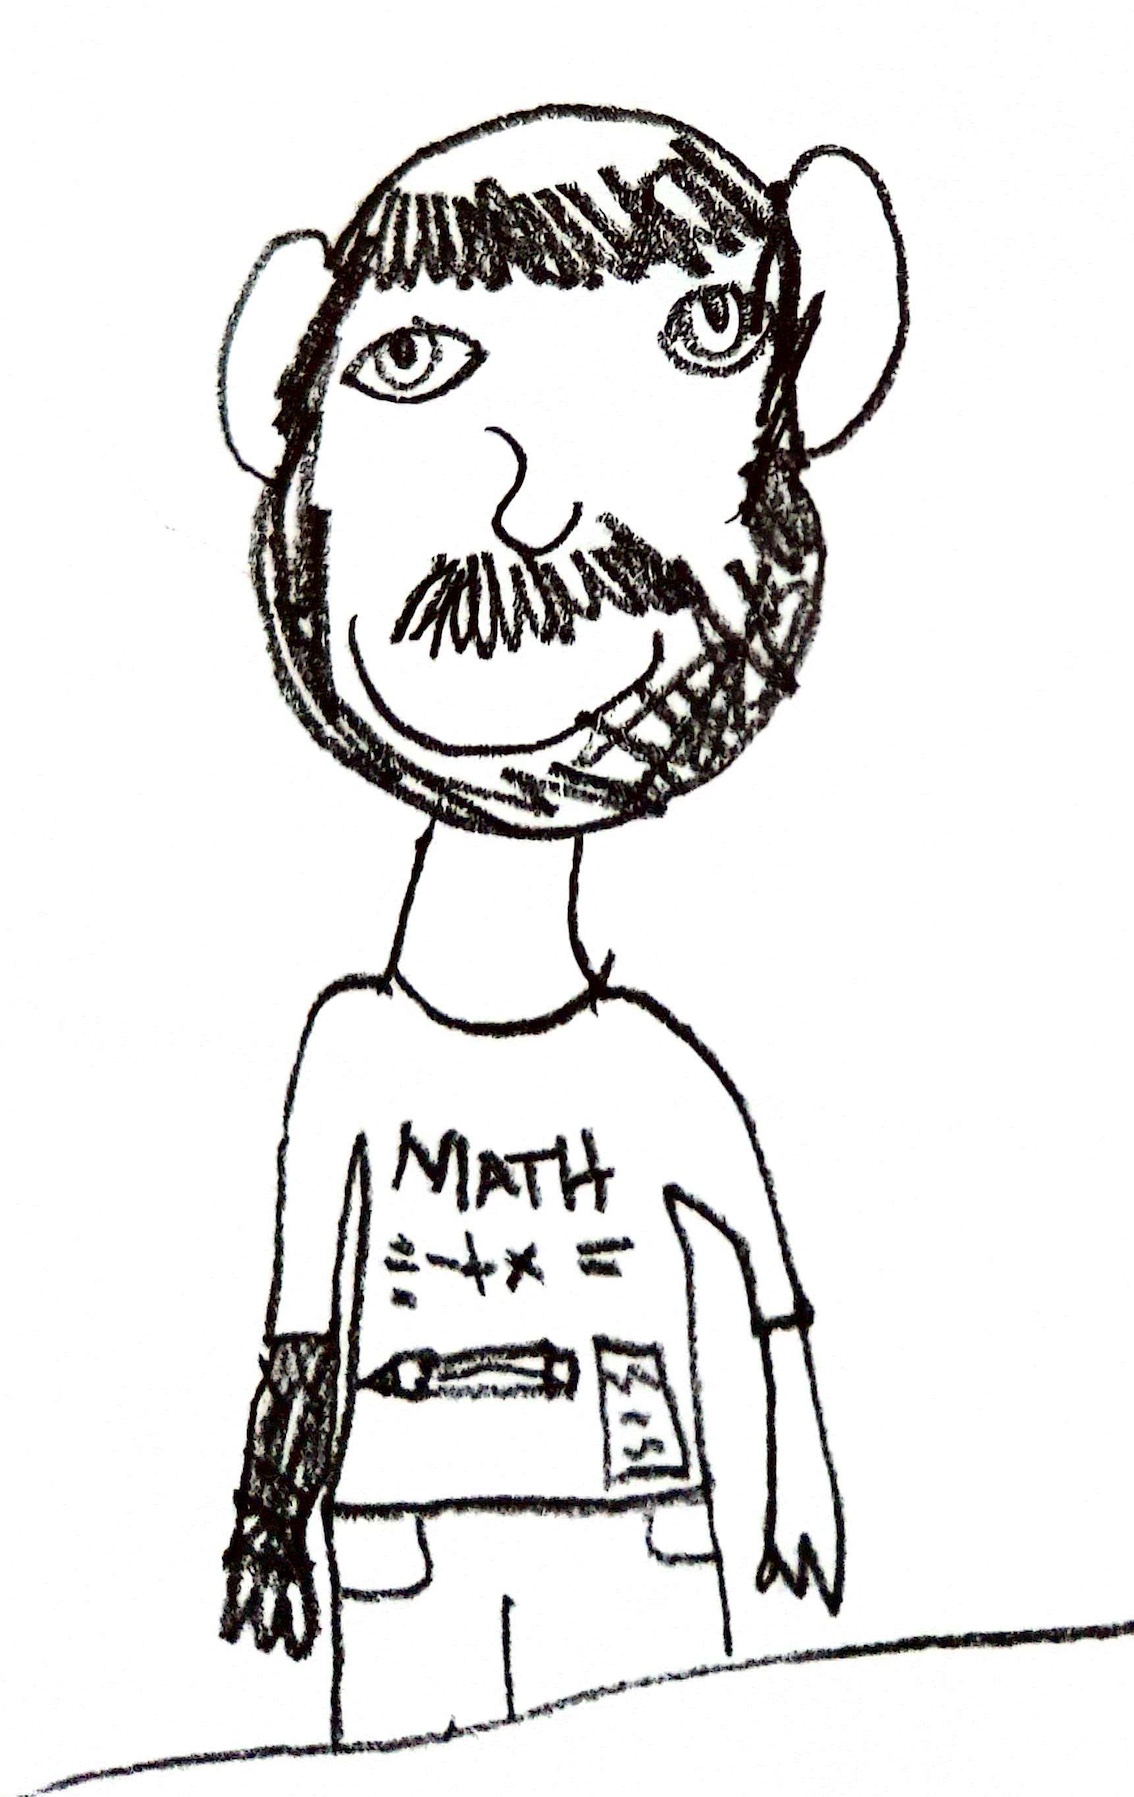 MATH
= - + × =